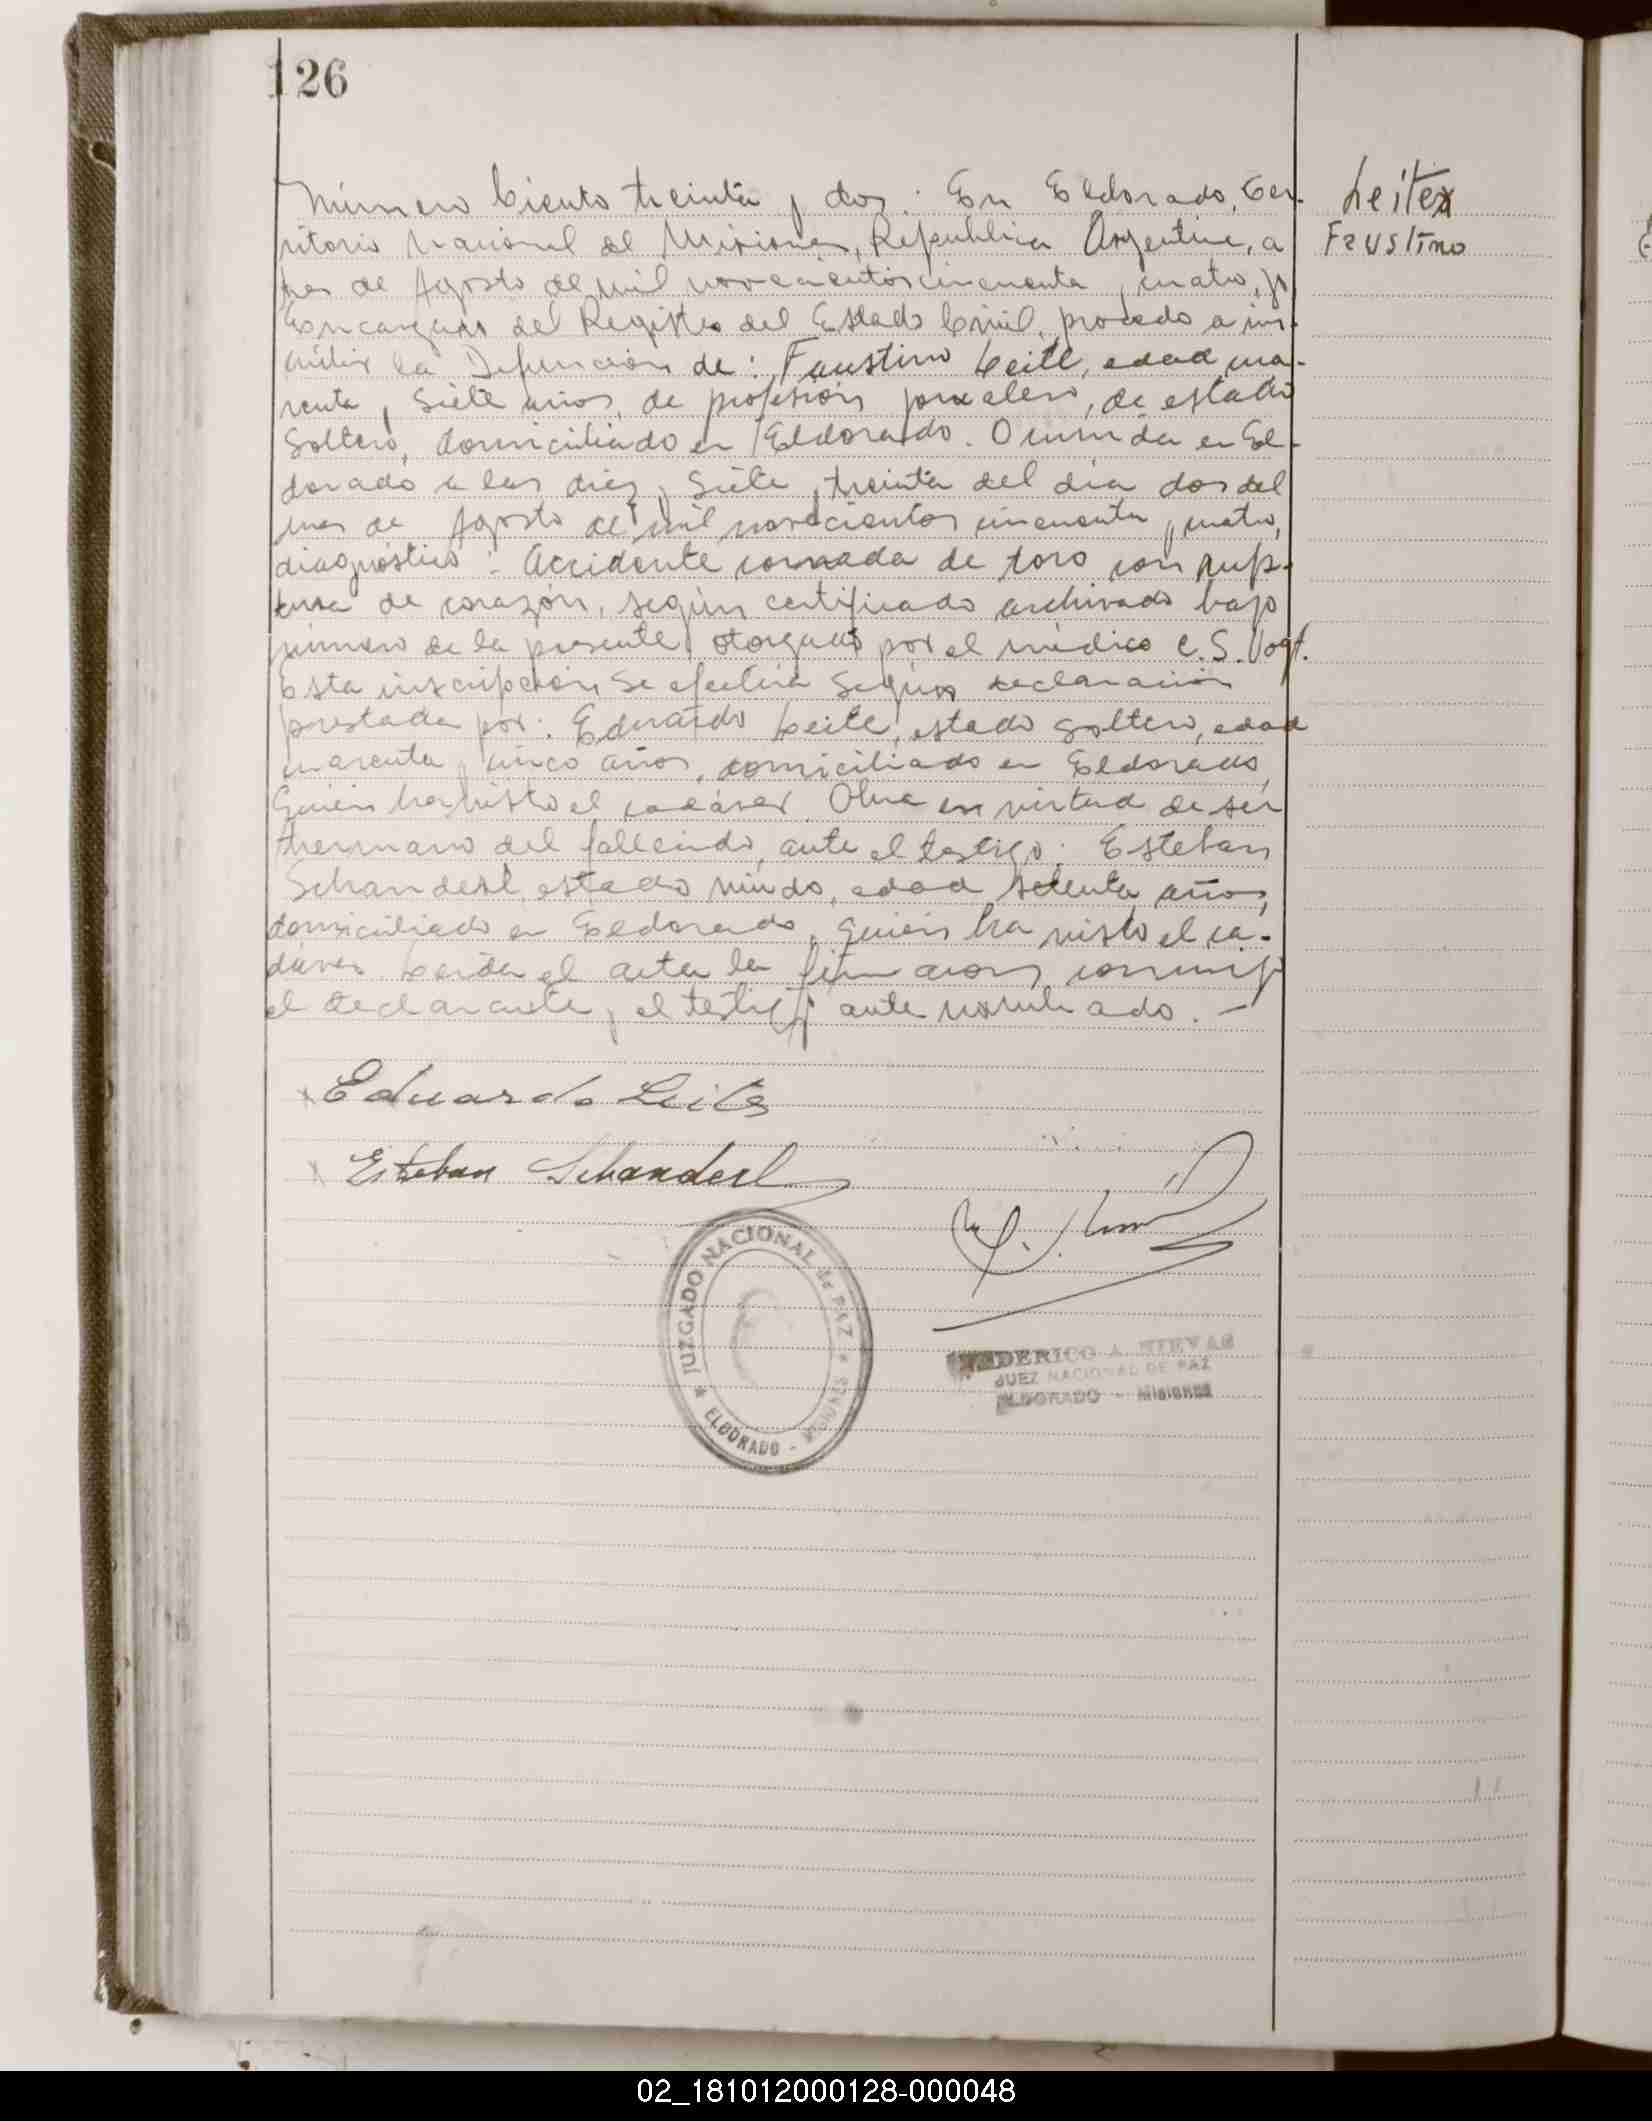 126
Número Ciento treinta y dos. En Eldorado, Ter-
ritorio Nacional de Misiones, República Argentina, a
tres de Agosto de mil novecientos cincuenta y cuatro, yo
Encargado del Registro del Estado Civil, procedo a ins-
cribir la Defunción de: Faustino Leite, edad cua-
renta y Siete años, de profesión jornalero, de estado
Soltero, domiciliado en Eldorado. Ocurrida en El-
dorado a las diez y Siete y treinta del día dos del
mes de Agosto de mil novecientos cincuenta y cuatro,
diagnóstico: Accidente cornada de toro con rup-
tura de corazón, según certificado archivado bajo
número de la presente otorgado por el médico C.S. Vogt.
Esta inscripción Se efectúa Según declaración
prestada por: Eduardo Leite, estado Soltero, edad
cuarenta y cinco años, domiciliado en Eldorado,
Quién ha visto el cadáver. Obra en virtud de ser
hermano del fallecido, ante el testigo: Esteban
Schanderl, estado viudo, edad setenta años,
domiciliado en Eldorado, quién ha visto el ca-
dáver. Leida el acta la firmaron conmigo
el declarante y el testigo ante nombrado. —
Leites
Faustino
x Eduardo Leite
x Esteban Schanderl
JUZGADO NACIONAL de PAZ
* ELDORADO - MISIONES *
FEDERICO A. NIEVAS
JUEZ NACIONAL DE PAZ
ELDORADO - Misiones
02_181012000128-000048